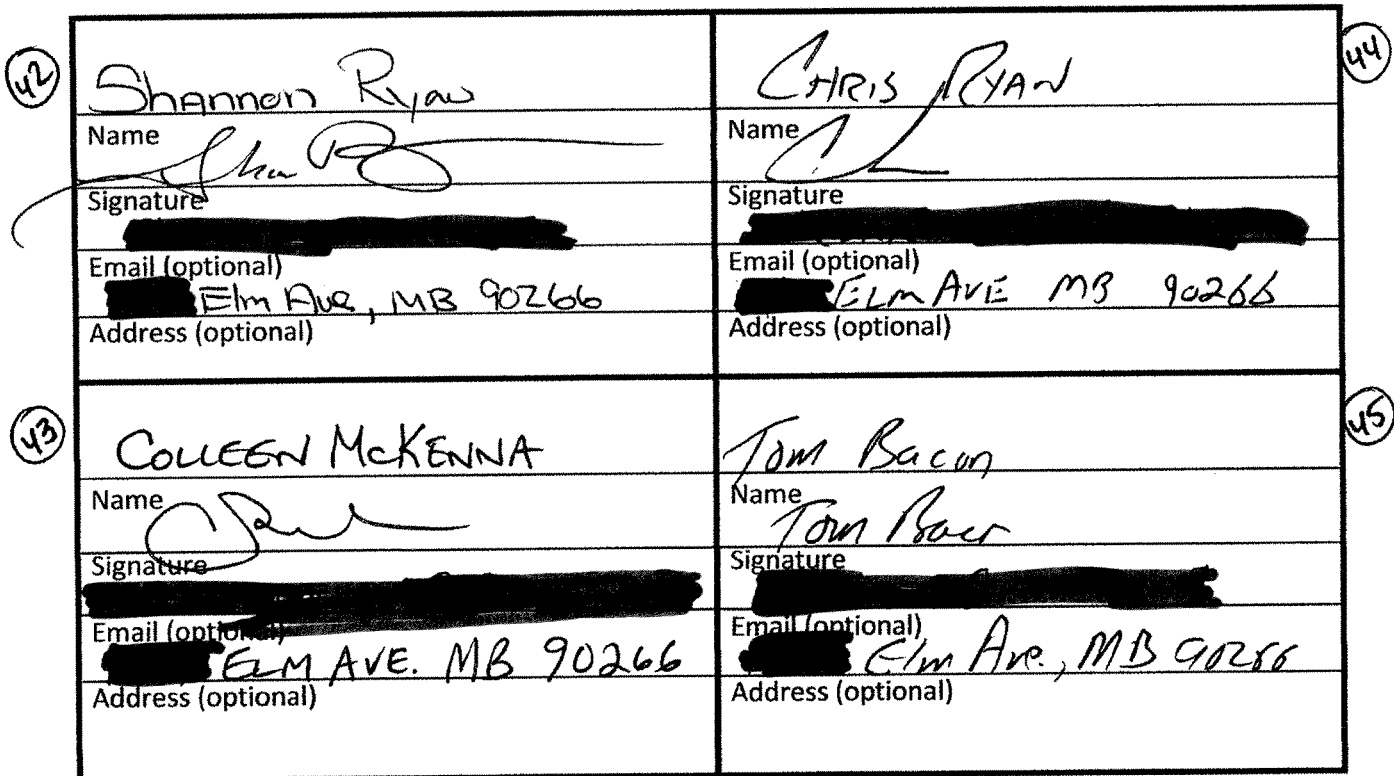 42
Shannon Ryan
Name
Signature
Email (optional)
Elm Ave, MB 90266
Address (optional)
44
CHRIS RYAN
Name
Signature
Email (optional)
ELM AVE MB 90266
Address (optional)
43
COLLEEN McKENNA
Name
Signature
Email (optional)
ELM AVE. MB 90266
Address (optional)
45
Tom Bacon
Name
Tom Bacon
Signature
Email (optional)
Elm Ave., MB 90266
Address (optional)